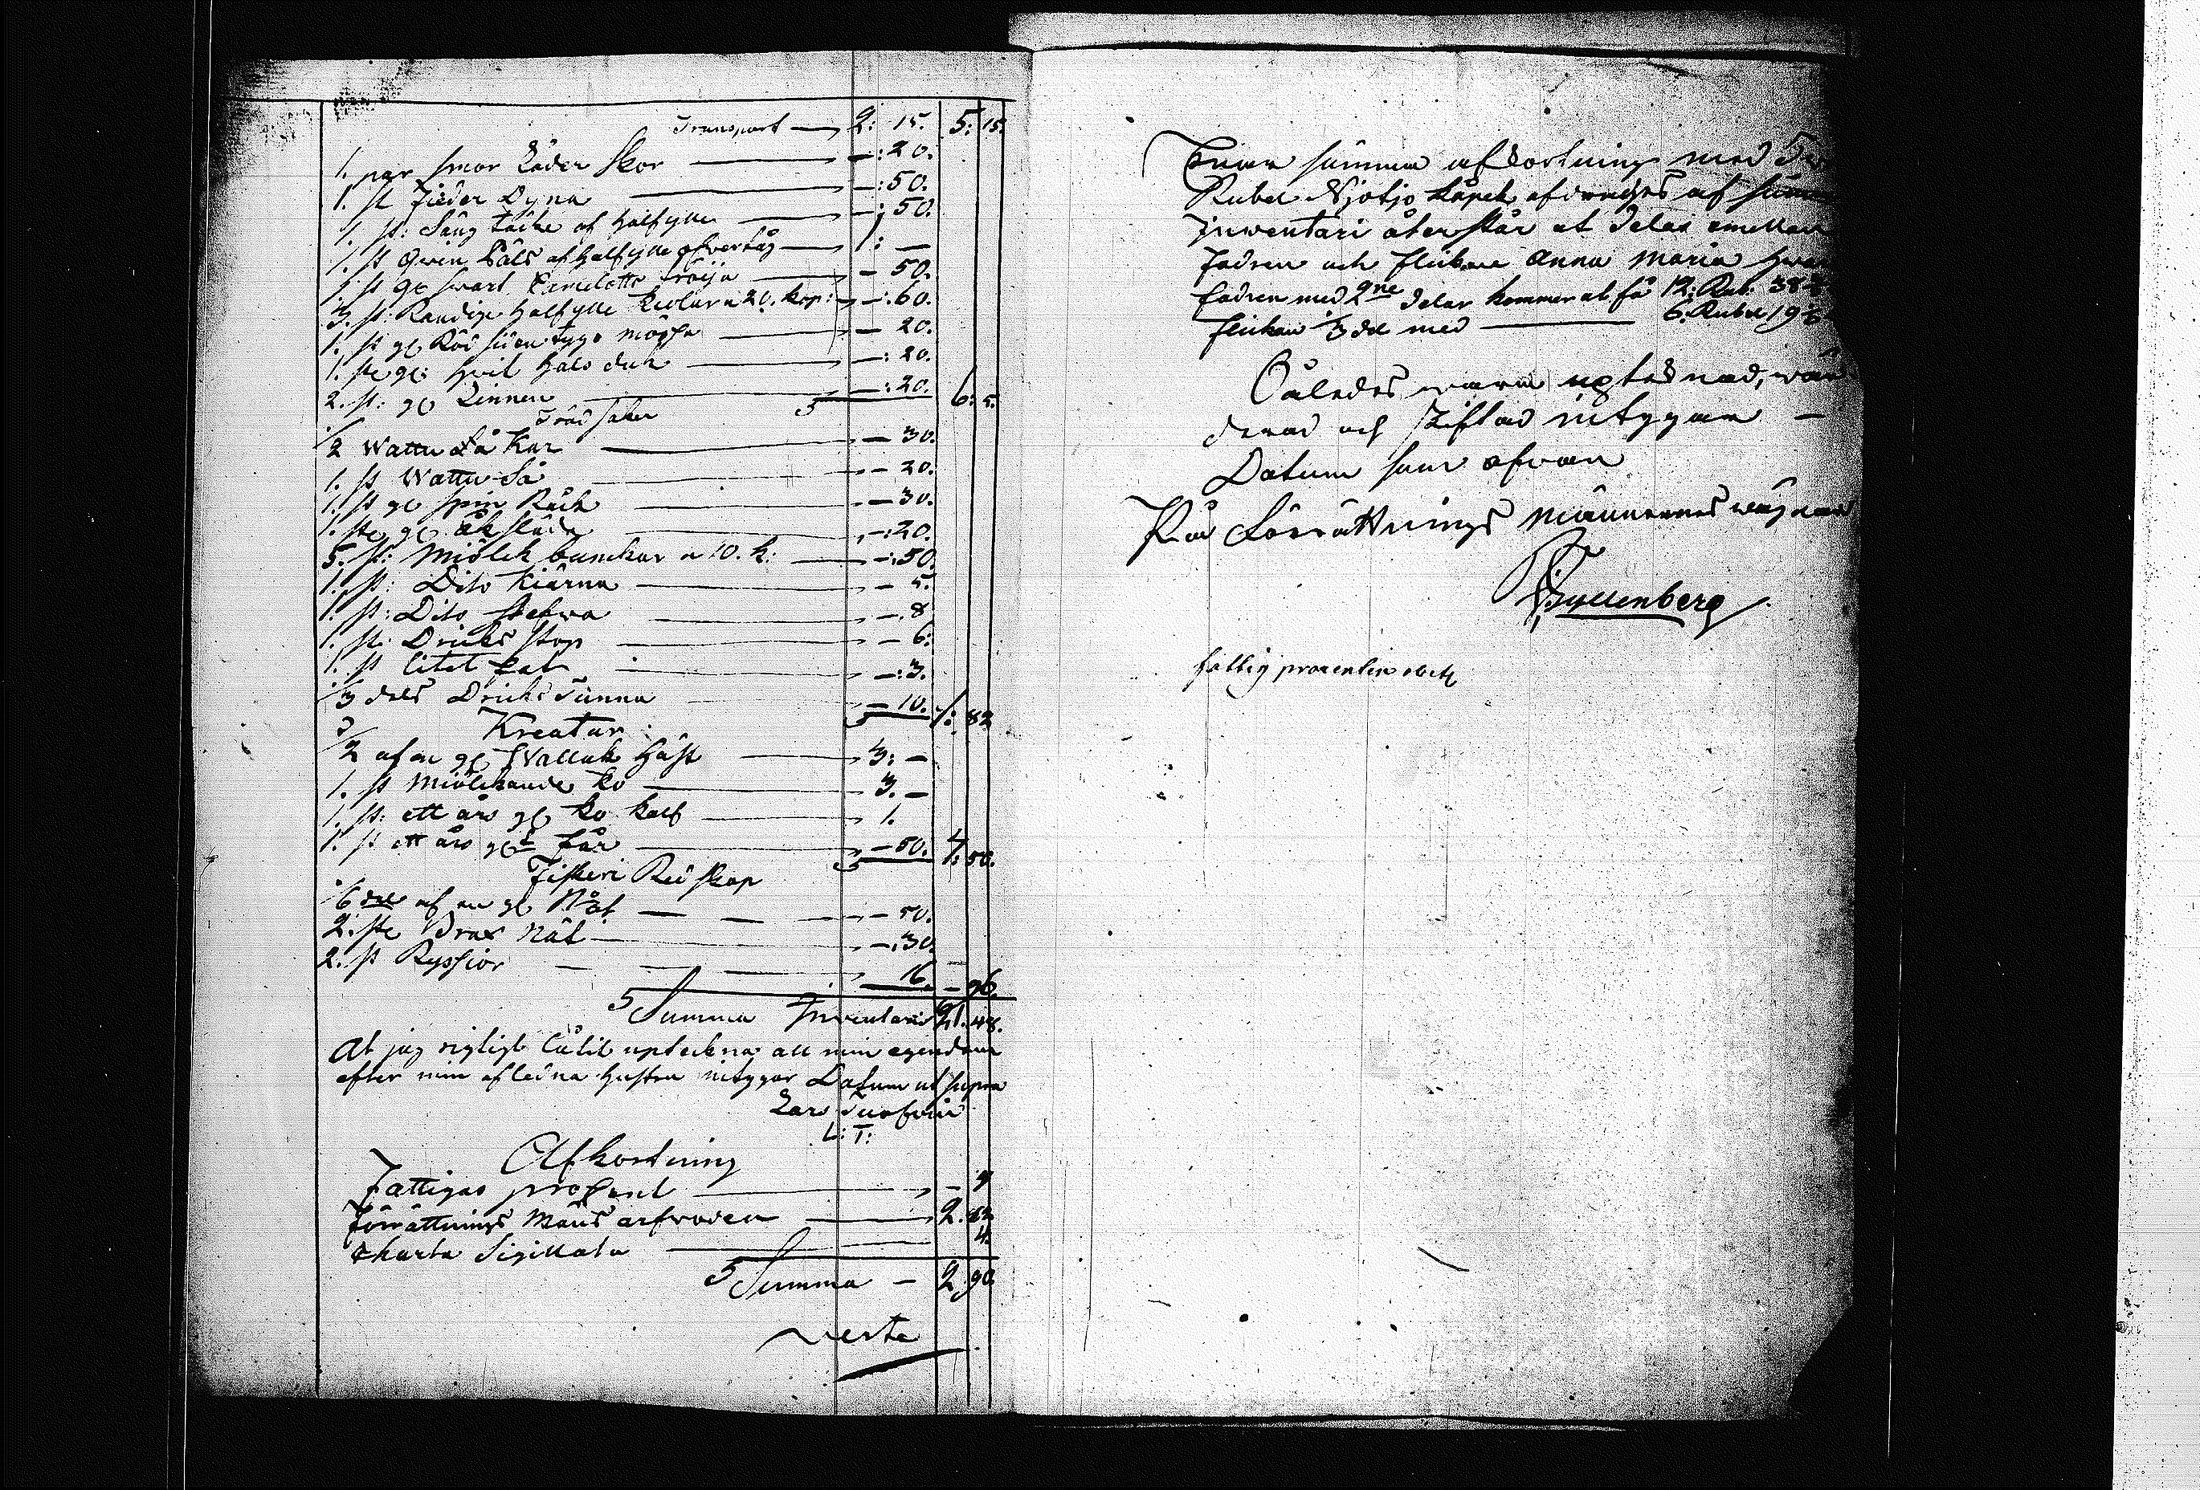 Transport — 2: 15. 5: 15.
1. par smor Läder Skor — -: 20.
1. st Fieder Dyna — -: 50.
1. st: Säng täcke af halfylle — -: 50.
1. st Qvin Päls af halfylle öfvertåg — 1: —
1. st gl swart Camelotts tröija — - 50.
3. st: Randiga halfylle Kiolar a 20. kop: — -: 60.
1. st gl Röd siden tygs mössa — - 20.
1. st gl: hvit hals duk — -: 20.
2. st: gl Linnen — -: 20. 6: 5.
Träd saker
2 Wattu Så Kar — - 30.
1. st Wattu Så — - 20.
1. st gl spin Råck — - 30.
1. st gl åk släde — -: 20.
5. st: Miölck bunckar a 10. k: — -: 50.
1. st: Dito Kiärna — - 5.
1. st: Dito stefva — -. 8
1. st: Dricks stop — - 6:
1. st litet fat — -: 3.
1/3 dels Dricks Tunna — - 10. 1: 82
Kreatur
1/2 af en gl Wallak häst — 3: —
1. st Miölckande ko — 3. —
1. st: ett års gl ko kalf — 1.
1. st ett års gl får — - 50. 7: 50.
Fiskeri Redskap
1/6 del af en gl Not — - 50.
2. st Brax Nät — -. 30.
2. st Ryssior — 16. - 96.
Summa Inventarii 21. 48.
At jag rigtigt låtit upteckna all min egendom
efter min afledna hustru intygar Datum ut supra
Lars Tuofvin
L: T:
Afkortning
Fattigas procent — - 4
förrättnings Mäns arfvoden — 2. 82
Charta Sigillata — 4.
Summa — 2. 90.
verte
summa afkortning med
Rubel Njotjo kåpek afdrages af
Inventari återstår at delas emellan
fadren och flickan Anna Maria
fadren med 2ne delar kommer at få 12. Rub. 38
flickan 1/3 del med — 6. Rubel 19
Således vara uptecknad, vär
derad och skiftad intygar —
Datum som ofvan
På Förrättnings männernes vägnar
Gyllenberg
fattig procenten